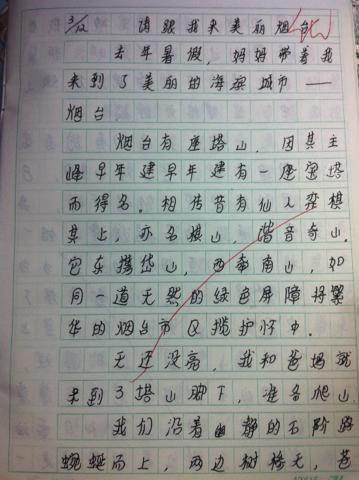 3/12 请跟我来美丽烟台
去年暑假，妈妈带着我
来到了美丽的海滨城市——
烟台
烟台有座塔山，因其主
峰早年建早年建有一座宝塔
而得名。相传昔有仙人弈棋
其上，亦名棋山，谐音奇山。
它东携岱山，西牵南山，如
同一道天然的绿色屏障将繁
华的烟台市区揽护怀中。
天还没亮，我和爸妈就
来到了塔山脚下，准备爬山。
我们沿着幽静的石阶路
蜿蜒而上，两边树榜天，苍